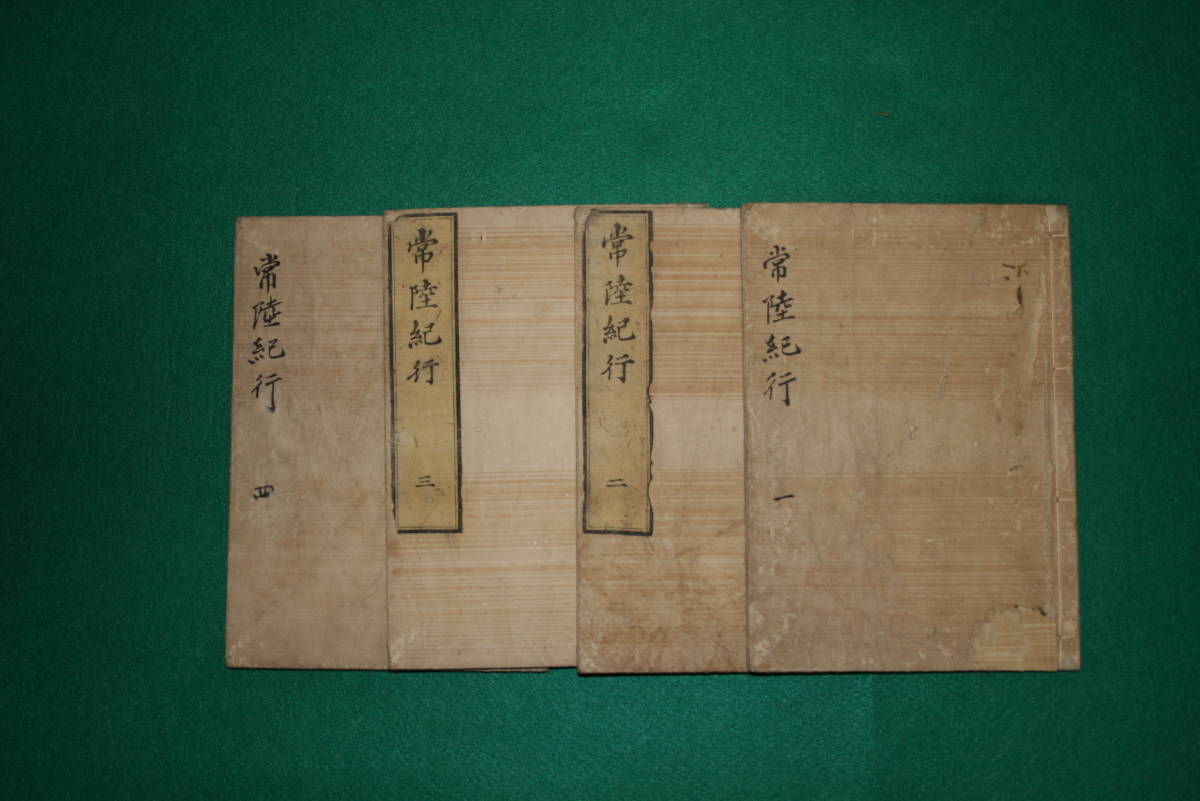 常陸紀行 一
常陸紀行 二
常陸紀行 三
常陸紀行 四